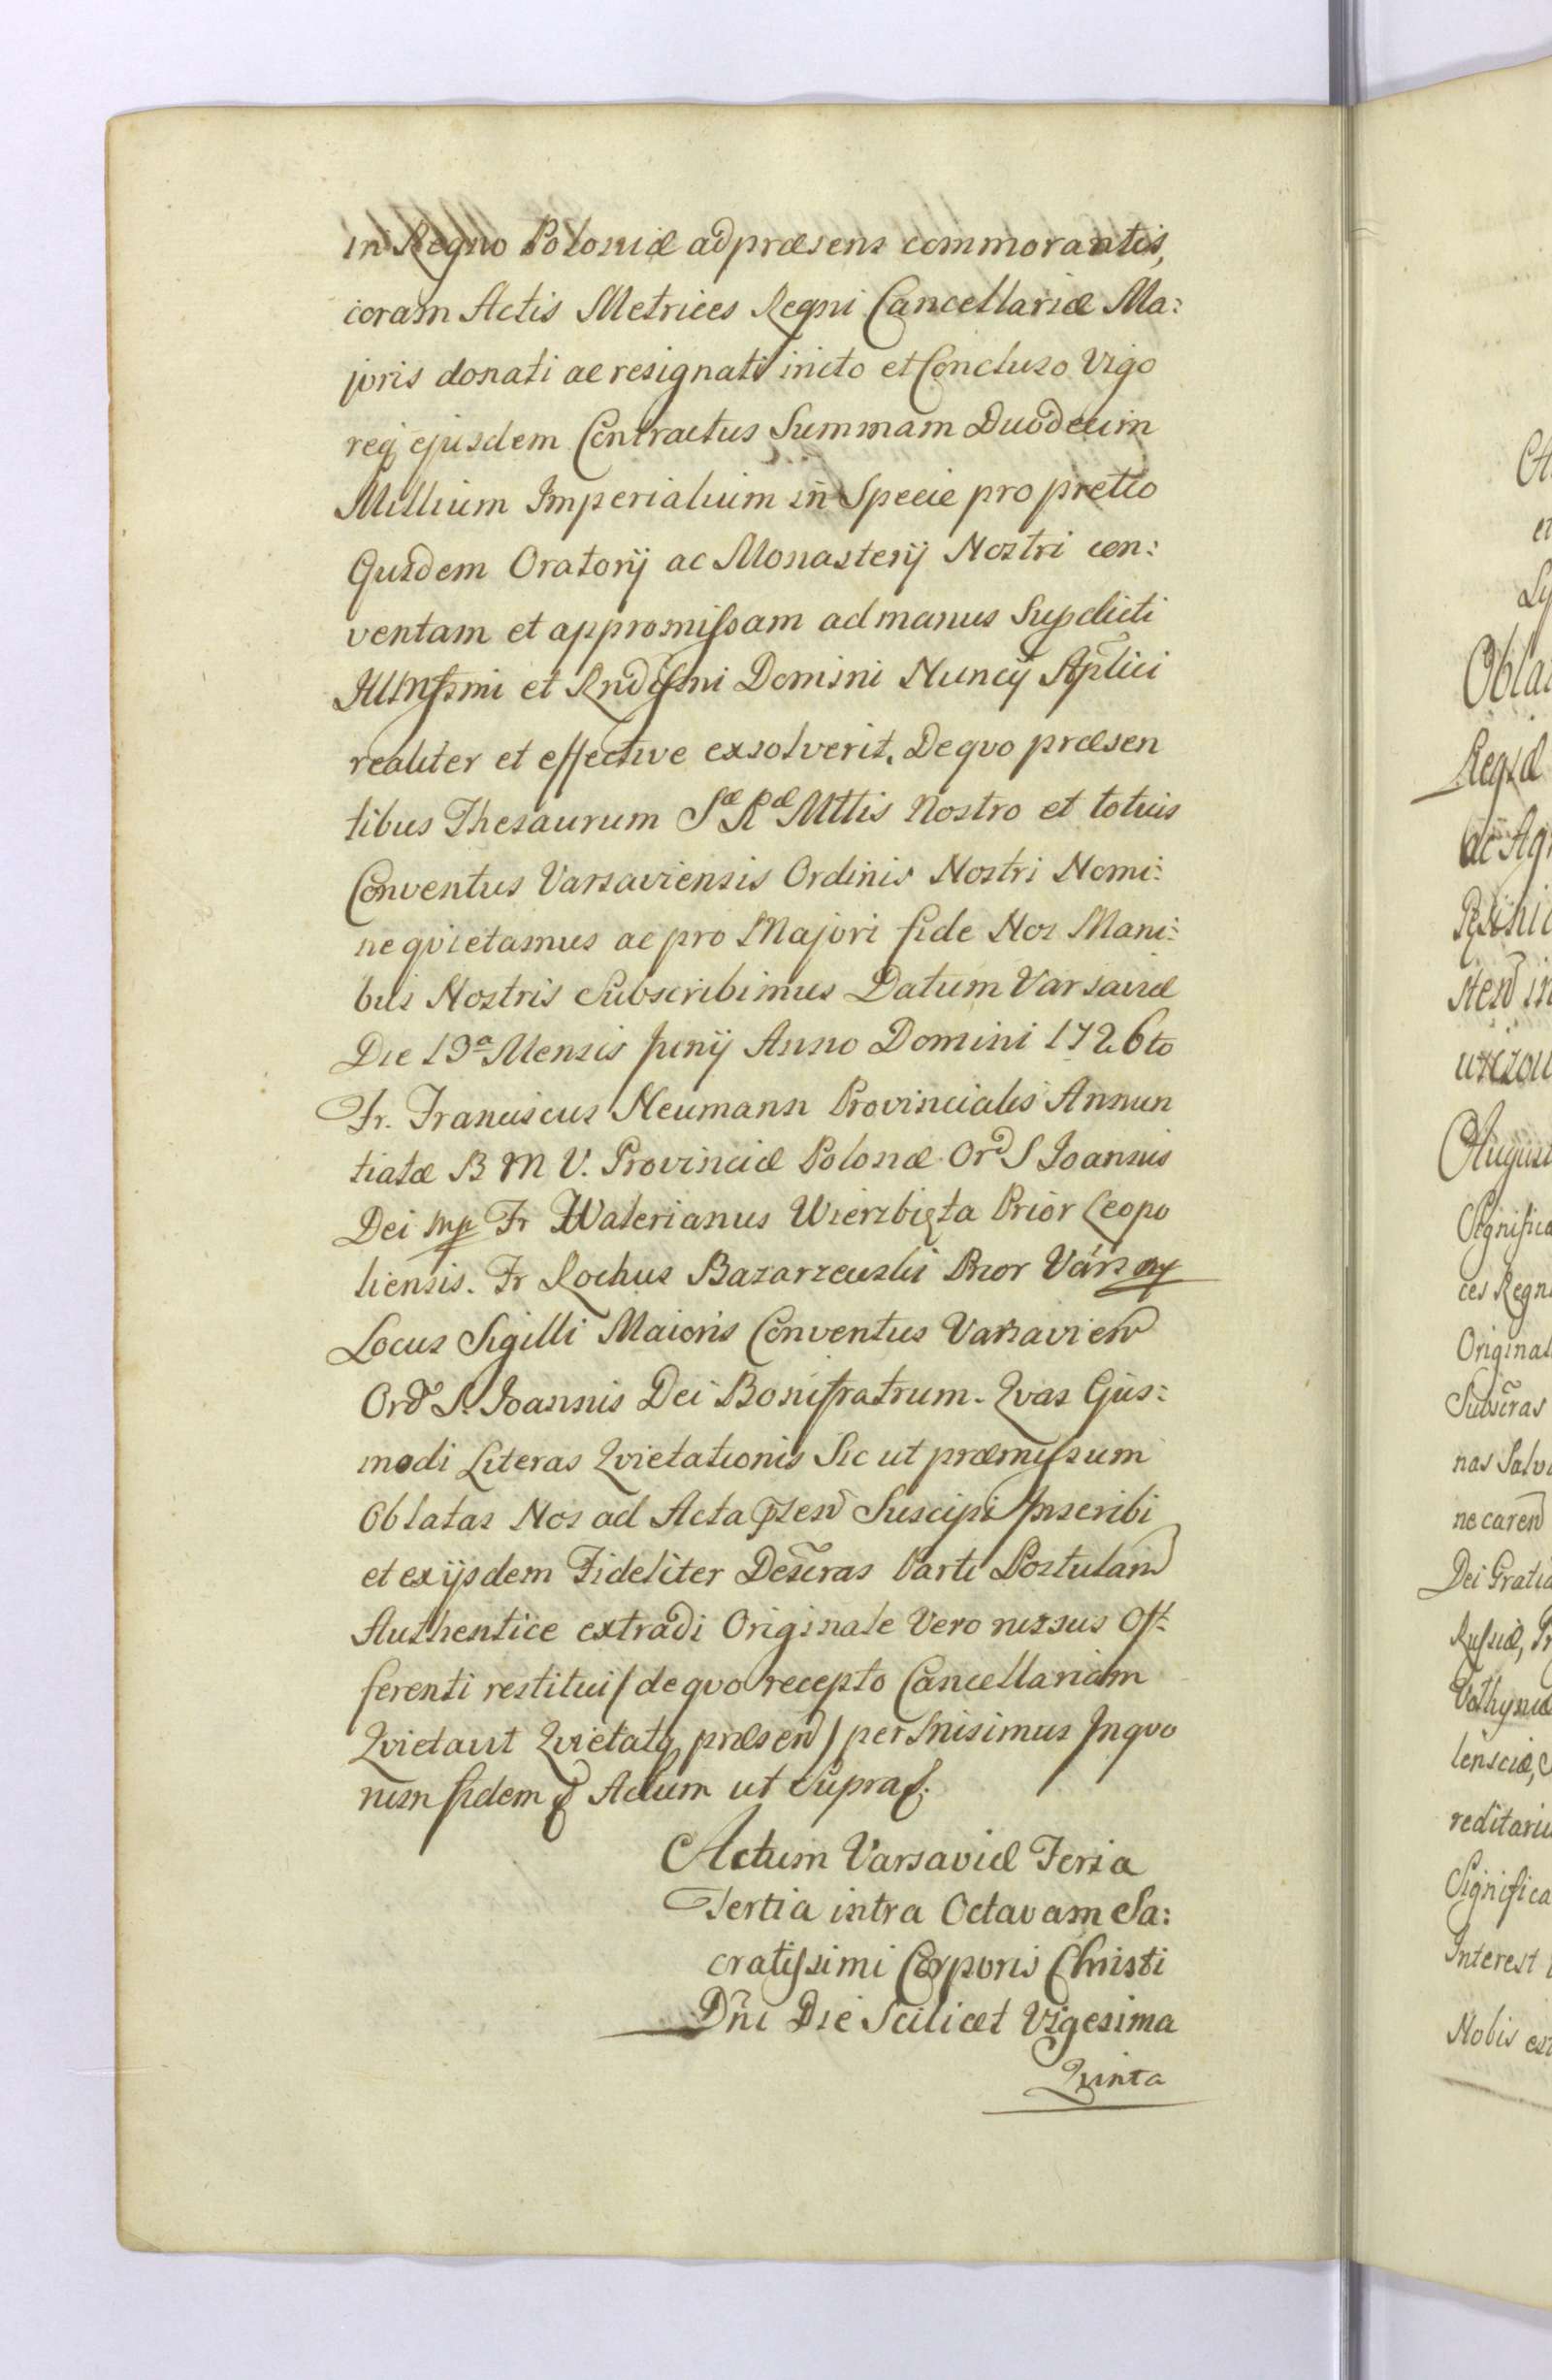 in Regno Poloniæ ad præsens commorantis,
coram Actis Metrices Regni Cancellariæ Ma:
joris donati ac resignati inito et Concluso Vigo
reqꝫ ejusdem Contractus Summam Duodecim
Millium Imperialium in Specie pro pretio
Ejusdem Oratorij ac Monasterij Nostri con:
ventam et appromissam ad manus Supdicti
Illmssmi et Rndissmi Domini Nuncij Aplici
realiter et effective exsolverit. De quo præsen
tibus Thesaurum Sæ Ræ Mttis Nostro et totius
Conventus Varsaviensis Ordinis Nostri Nomi:
ne qvietamus ac pro Majori fide Nos Mani:
bus Nostris Subscribimus Datum Varsaviæ
Die 19a Mensis Junij Anno Domini 1726to
Fr. Franciscus Neumann Provincialis Annun
tiatæ B M V. Provinciæ Polonæ Ord S Joannis
Dei mp Fr Walerianus Wierzbięta Prior Leopo
liensis. Fr Rochus Bazarzewski Prior Vars mp
Locus Sigilli Maioris Conventus Varsavien
Ord S. Joannis Dei Bonifratrum. Qvas Ejus:
modi Literas Qvietationis Sic ut præmissum
Oblatas Nos ad Acta pnsen Suscipi Inscribi
et ex ijsdem Fideliter Descras Parti Postulan
Authentice extradi Originale Vero rursus Off:
ferenti restitui / de quo recepto Cancellariam
Qvietavit Qvietatqꝫ præsen / permisimus In quo
rum fidem & Actum ut Supra.
Actum Varsaviæ Feria
Tertia intra Octavam Sa:
cratissimi Corporis Christi
Dni Die Scilicet Vigesima
Qvinta
Oblat
ac Agr
Origina
ne caren
Dei Gratia
Interest
Nobis